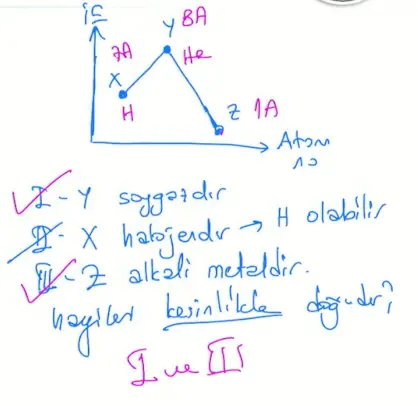 İE
Y 8A
7A
X
He
H
Z 1A
Atom
no
I - Y soygazdır
II - X halojendir → H olabilir
III - Z alkali metaldir.
hangileri kesinlikle doğrudur?
I ve III